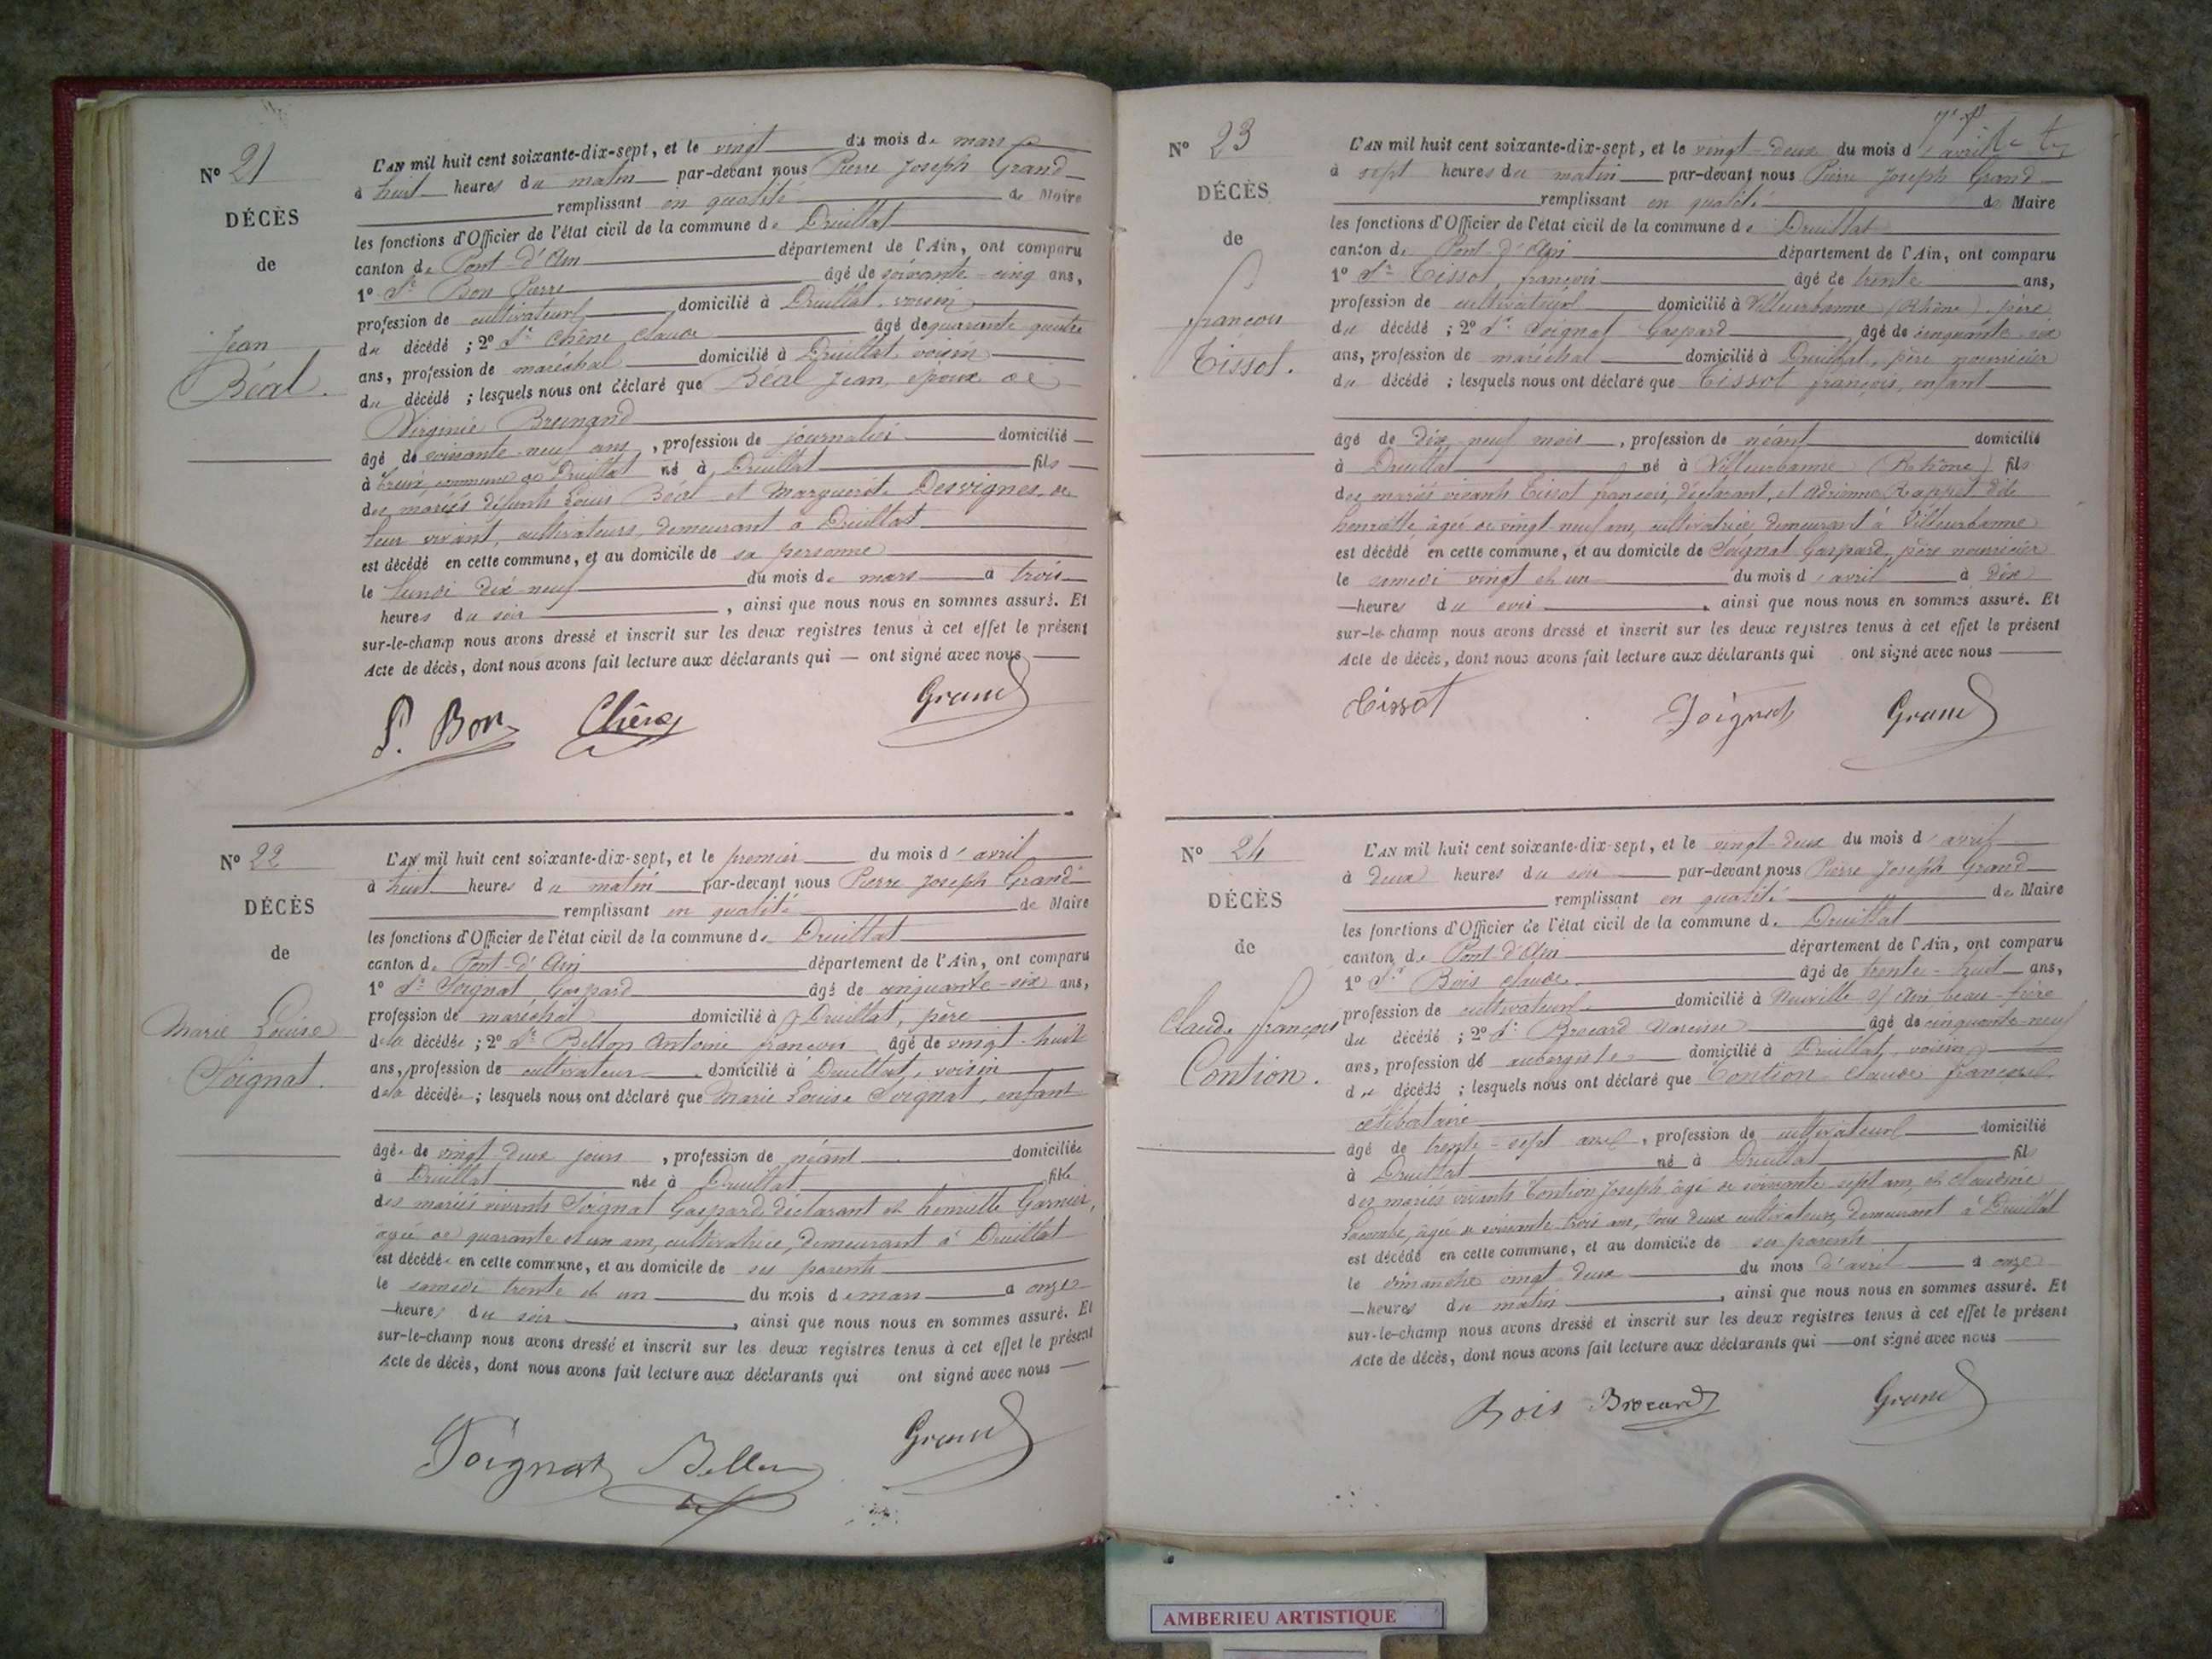 Nº 21
DÉCÈS
de
Jean
Béal.
L'AN mil huit cent soixante-dix-sept, et le vingt du mois de mars
à huit heures du matin par-devant nous Pierre Joseph Grand
remplissant en qualité de Maire
les fonctions d'Officier de l'état civil de la commune de Druillat
canton de Pont-d'Ain département de l'Ain, ont comparu
1º Sr Bon Pierre âgé de soixante-cinq ans,
profession de cultivateur domicilié à Druillat, voisin
du décédé ; 2º Sr Chêne Claude âgé de quarante quatre
ans, profession de maréchal domicilié à Druillat, voisin
du décédé ; lesquels nous ont déclaré que Béal Jean, époux de
Virginie Brunand
âgé de soixante-neuf ans, profession de journalier domicilié
à commune de Druillat né à Druillat fils
des mariés défunts Louis Béal et Marguerite Desvignes, de
leur vivant, cultivateurs, demeurant à Druillat
est décédé en cette commune, et au domicile de sa personne
le lundi dix-neuf du mois de mars à trois
heures du soir, ainsi que nous nous en sommes assuré. Et
sur-le-champ nous avons dressé et inscrit sur les deux registres tenus à cet effet le présent
Acte de décès, dont nous avons fait lecture aux déclarants qui — ont signé avec nous
P. Bon Chêne Grand
Nº 22
DÉCÈS
de
Marie Louise
Soignat.
L'AN mil huit cent soixante-dix-sept, et le premier du mois d'avril
à huit heures du matin par-devant nous Pierre Joseph Grand
remplissant en qualité de Maire
les fonctions d'Officier de l'état civil de la commune de Druillat
canton de Pont-d'Ain département de l'Ain, ont comparu
1º Sr Soignat Gaspard âgé de cinquante-six ans,
profession de maréchal domicilié à Druillat, père
de la décédée ; 2º Sr Belton Antoine françois âgé de vingt-huit
ans, profession de cultivateur domicilié à Druillat, voisin
de la décédée ; lesquels nous ont déclaré que Marie Louise Soignat, enfant
âgée de vingt deux jours, profession de néant domiciliée
à Druillat née à Druillat fille
des mariés vivants Soignat Gaspard, déclarant et henriette Garnier,
âgée de quarante et un ans, cultivatrice, demeurant à Druillat
est décédée en cette commune, et au domicile de ses parents
le samedi trente et un du mois de mars à onze
heures du soir, ainsi que nous nous en sommes assuré. Et
sur-le-champ nous avons dressé et inscrit sur les deux registres tenus à cet effet le présent
Acte de décès, dont nous avons fait lecture aux déclarants qui ont signé avec nous
Soignat Grand
Nº 23
DÉCÈS
de
françois
Tissot.
L'AN mil huit cent soixante-dix-sept, et le vingt-deux du mois d'avril
à sept heures du matin par-devant nous Pierre Joseph Grand
remplissant en qualité de Maire
les fonctions d'Officier de l'état civil de la commune de Druillat
canton de Pont-d'Ain département de l'Ain, ont comparu
1º Sr Tissot, françois âgé de trente ans,
profession de cultivateur domicilié à Villeurbanne (Rhône), père
du décédé ; 2º Sr Soignat Gaspard âgé de cinquante six
ans, profession de maréchal domicilié à Druillat, père nourricier
du décédé ; lesquels nous ont déclaré que Tissot françois, enfant
âgé de dix neuf mois, profession de néant domicilié
à Druillat né à Villeurbanne (Rhône) fils
des mariés vivants Tissot françois, déclarant, et Adrienne Rappet dite
henriette, âgée de vingt neuf ans, cultivatrice, demeurant à Villeurbanne
est décédé en cette commune, et au domicile de Soignat Gaspard, père nourricier
le samedi vingt et un du mois d'avril à dix
heures du soir, ainsi que nous nous en sommes assuré. Et
sur-le-champ nous avons dressé et inscrit sur les deux registres tenus à cet effet le présent
Acte de décès, dont nous avons fait lecture aux déclarants qui ont signé avec nous
Tissot Soignat Grand
Nº 24
DÉCÈS
de
Claude françois
Contion.
L'AN mil huit cent soixante-dix-sept, et le vingt-deux du mois d'avril
à deux heures du soir par-devant nous Pierre Joseph Grand
remplissant en qualité de Maire
les fonctions d'Officier de l'état civil de la commune de Druillat
canton de Pont-d'Ain département de l'Ain, ont comparu
1º Sr Bois claude âgé de trente-huit ans,
profession de cultivateur domicilié à Neuville s/ Ain beau-frère
du décédé ; 2º Sr Brocard Narcisse âgé de cinquante-neuf
ans, profession de aubergiste domicilié à Druillat, voisin
du décédé ; lesquels nous ont déclaré que Contion claude françois
célibataire
âgé de trente-sept ans, profession de cultivateur domicilié
à Druillat né à Druillat fils
des mariés vivants Contion Joseph, âgé de soixante sept ans, et claudine
Lacombe, âgée de soixante trois ans, tous deux cultivateurs, demeurant à Druillat
est décédé en cette commune, et au domicile de ses parents
le dimanche vingt deux du mois d'avril à onze
heures du matin, ainsi que nous nous en sommes assuré. Et
sur-le-champ nous avons dressé et inscrit sur les deux registres tenus à cet effet le présent
Acte de décès, dont nous avons fait lecture aux déclarants qui — ont signé avec nous
Bois Brocard Grand
AMBERIEU ARTISTIQUE